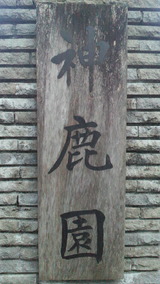 神鹿園